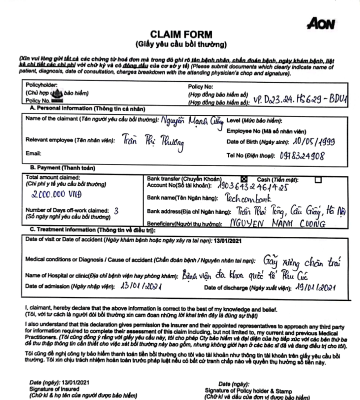 AON
CLAIM FORM
(Giấy yêu cầu bồi thường)
(Xin vui lòng gửi tất cả các chứng từ hoá đơn mà trong đó ghi rõ tên bệnh nhân, chẩn đoán bệnh, ngày khám bệnh, liệt
kê chi tiết các phí với chữ ký và có đóng dấu của cơ sở y tế) (Please submit documents which clearly indicate name of
patient, diagnosis, date of consultation, charges breakdown with the attending physician's chop and signature).
Policyholder: Policy No:
(Chủ hợp bảo hiểm) (Hợp đồng bảo hiểm số)
Policy No. (Hợp đồng bảo hiểm số) VP.D23.24.HS629-BDV1
A. Personal Information (Thông tin cá nhân)
Name of the claimant (Tên người yêu cầu bồi thường): Nguyễn Mạnh Cường Level (Mức bảo hiểm):
Employee No (Mã số nhân viên)
Relevant employee (Tên nhân viên): Trần Thị Phương Date of Birth (Ngày sinh): 10/05/1999
Email: Tel No (Điện thoại): 0978324908
B. Payment (Thanh toán)
Total amount claimed: Bank transfer (Chuyển Khoản) Cash (Tiền mặt):
(Chi phí y tế yêu cầu bồi thường) Account No(Số tài khoản): 19036432461425
2.000.000 VNĐ Bank name(Tên Ngân hàng): Techcombank
Number of Days off-work claimed: 3 Bank address(Địa chỉ Ngân hàng): Trần Thái Tông, Cầu Giấy, Hà Nội
(Số ngày nghỉ yêu cầu bồi thường) Beneficiary(Người thụ hưởng): NGUYEN MANH CUONG
C. Treatment information (Thông tin về điều trị):
Date of visit or Date of accident (Ngày khám bệnh hoặc ngày xảy ra tai nạn): 13/01/2021
Medical conditions or Diagnosis / Cause of accident (Chẩn đoán bệnh / Nguyên nhân tai nạn): Gãy xương chân trái
Name of Hospital or clinic(Địa chỉ bệnh viện hay phòng khám): Bệnh viện đa khoa quốc tế Thu Cúc
Date of admission (Ngày nhập viện): 13/01/2021 Date of discharge (Ngày xuất viện): 19/01/2021
I, claimant, hereby declare that the above information is correct to the best of my knowledge and belief.
(Tôi, với tư cách là người đòi bồi thường xin cam đoan những lời khai trên đây là đúng sự thật)
I also understand that this declaration gives permission the insurer and their appointed representatives to approach any third party
for information required to complete their assessment of this claim including, but not limited to, my current and previous Medical
Practitioners. (Tôi cũng đồng ý rằng với giấy yêu cầu này, tôi cho phép Cty bảo hiểm và đại diện của họ tiếp xúc với các bên thứ ba
để thu thập thông tin cần thiết cho việc xét bồi thường này bao gồm, nhưng không giới hạn ở các bác sĩ đã và đang điều trị cho tôi).
Tôi cũng đề nghị công ty bảo hiểm thanh toán tiền bồi thường cho tôi vào tài khoản như thông tin tài khoản trên giấy yêu cầu bồi
thường. Tôi xin chịu trách nhiệm hoàn toàn trước pháp luật nếu có bất cứ tranh chấp nào về quyền thụ hưởng số tiền này.
Date (ngày): 13/01/2021 Date (ngày):
Signature of Insured Signature of Policy holder & Stamp
(Chữ kí & họ tên của người được bảo hiểm) (Chữ kí và dấu của đơn vị được bảo hiểm)